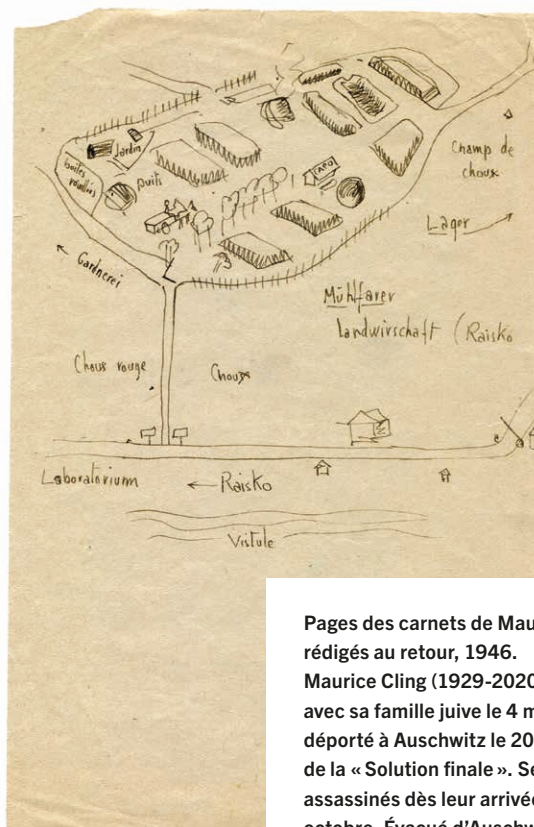 Jardin
boîtes rouillées
Puits
APO
Champ de
choux
Lager
Gärtnerei
Mühlfarer
Landwirschaft (Raisko
Choux rouge
Choux
Laboratorium
← Raisko
Vistule
Pages des carnets de Mau
rédigés au retour, 1946.
Maurice Cling (1929-2020
avec sa famille juive le 4 m
déporté à Auschwitz le 20
de la « Solution finale ». Se
assassinés dès leur arrivée
octobre. Évacué d'Auschw